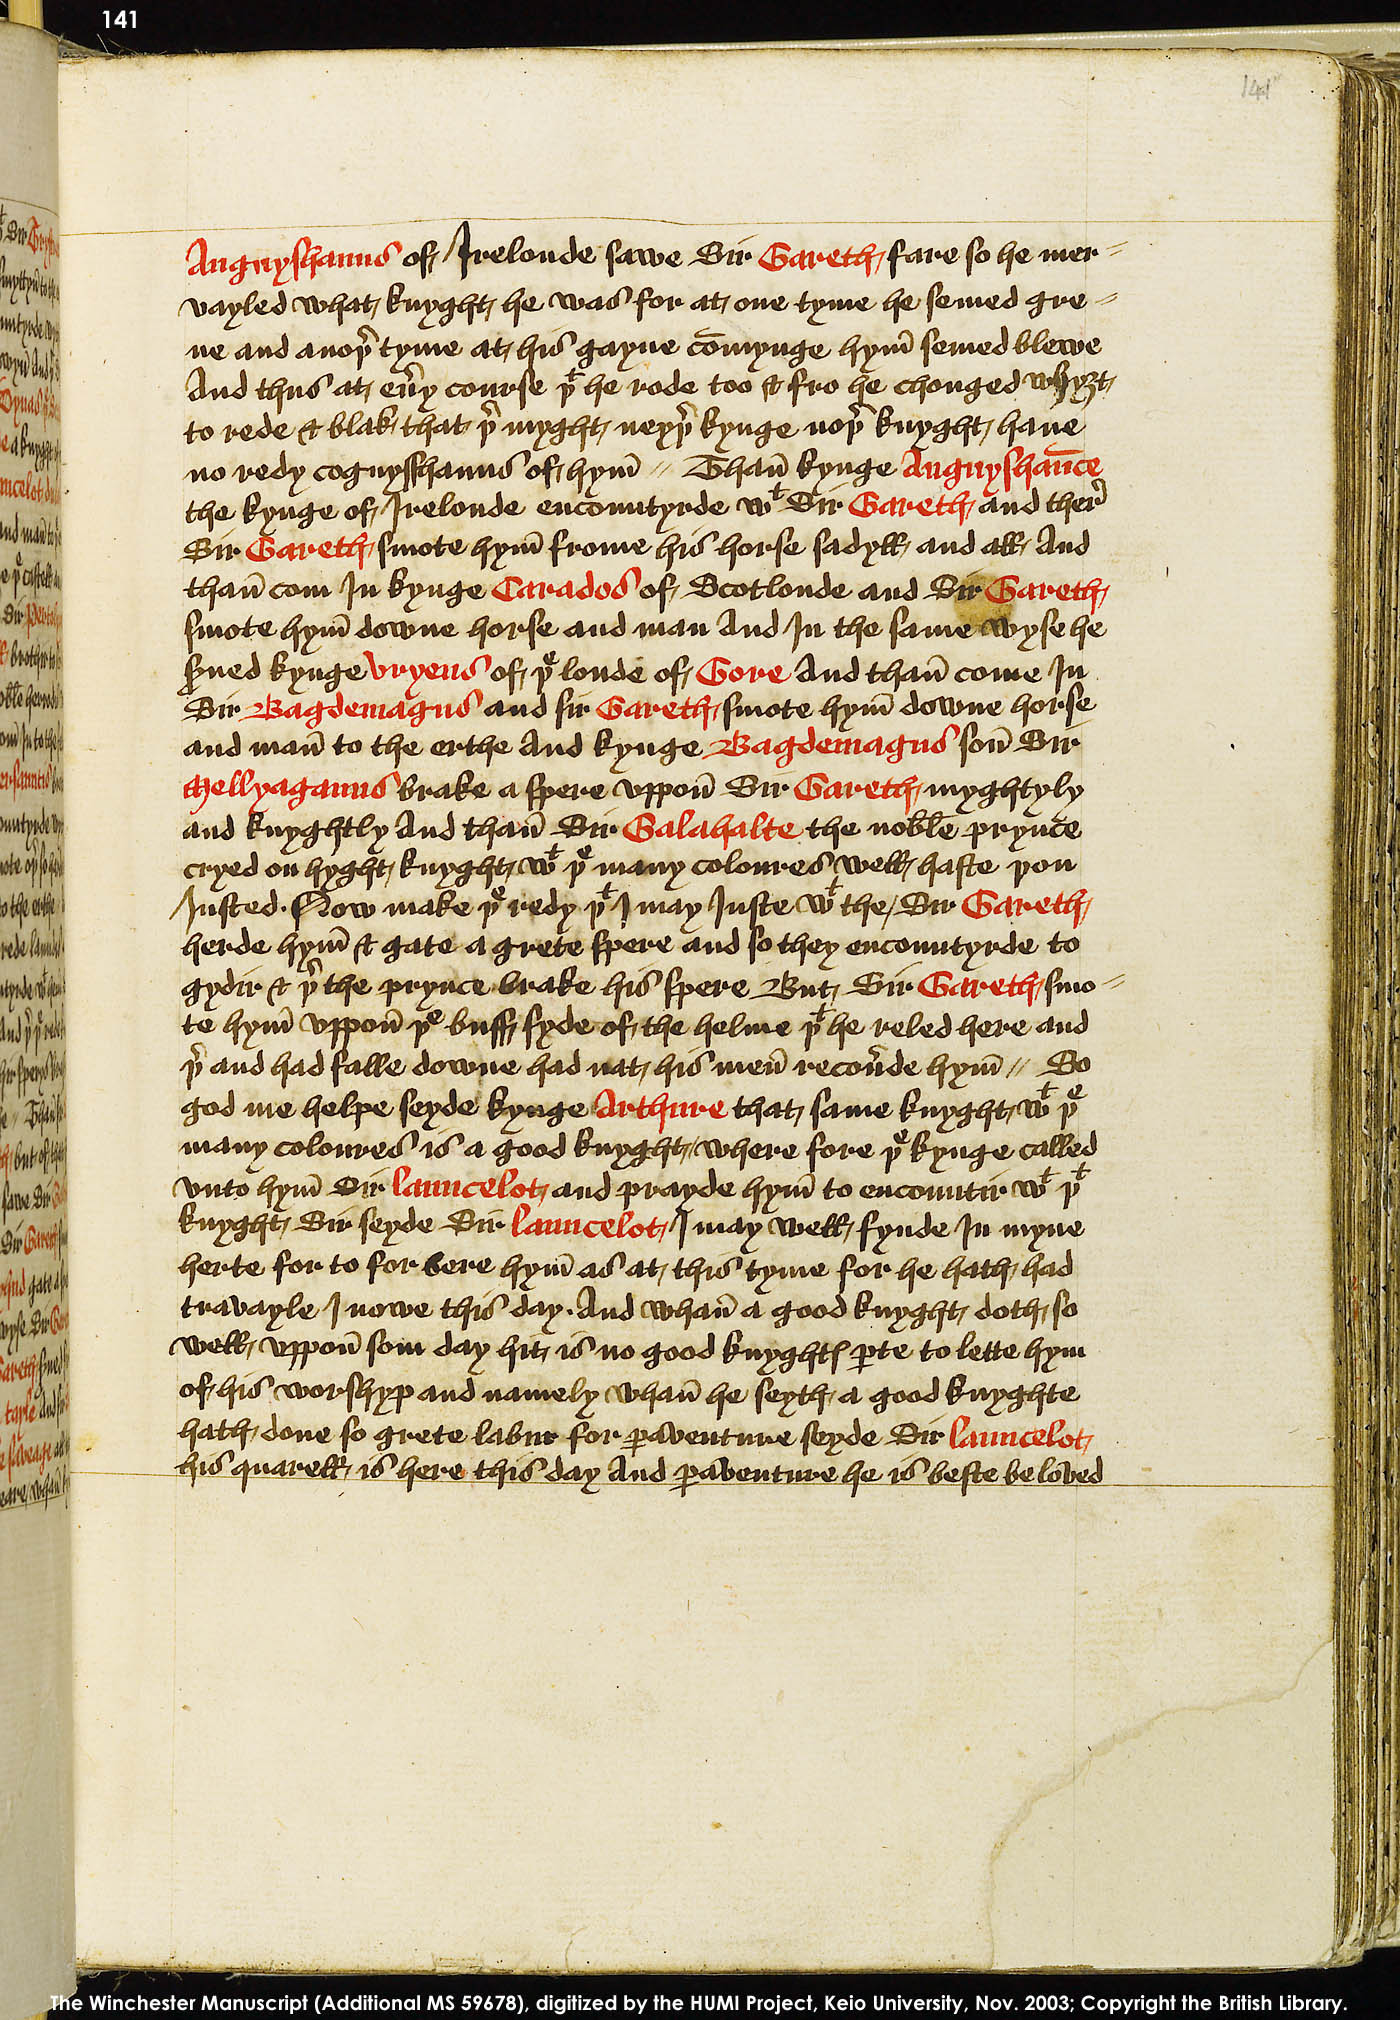 141
141
Anguyshaunus of Irelonde sawe Sir Gareth fare so he mer=
vayled what knyght he was for at one tyme he semed gre=
ne and anoþ͛ tyme at his gayne com̄ynge hym̄ semed blewe
And thus at eu͛y course þᵗ he rode too & fro he chonged whyȝt
to rede & blak that þ͛ myght neyþ͛ kynge noþ͛ knyght haue
no redy cognysshauns of hym̄ // Than̄ kynge Anguyshaun̄ce
the kynge of Irelonde encountyrde wᵗ Sir Gareth and ther͛
Sir Gareth smote hym̄ frome his horse sadyll and all And
than̄ com In kynge Carados of Scotlonde and Sir Gareth
smote hym̄ downe horse and man And In the same wyse he
s͛ued kynge Vryens of þᵉ londe of Gore And than̄ come In
Sir Bagdemagus and sir Gareth smote hym̄ downe horse
and man̄ to the erthe And kynge Bagdemagus son̄ Sir
Mellyagauns brake a spere vppon̄ Sir Gareth myghtyly
and knyghtly And than̄ Sir Galahalte the noble prynce
cryed on hyght knyght wᵗ þᵉ many coloures well haste þou
Justed. Now make þᵉ redy þᵗ I may Juste wᵗ the / Sir Gareth
herde hym̄ & gate a grete spere and so they encountyrde to
gydir & þ͛ the prynce brake his spere But Sir Gareth smo=
te hym̄ vppon̄ þᵉ buff syde of the helme þᵗ he reled here and
þ͛ and had falle downe had nat his men̄ recou͛de hym̄ // So
god me helpe seyde kynge Arthure that same knyght wᵗ þᵉ
many coloures is a good knyght / where fore þᵉ kynge called
vnto hym̄ Sir launcelot and prayde hym̄ to encountir wᵗ þᵗ
knyght Sir seyde Sir launcelot I may well fynde In myne
herte for to for bere hym̄ as at this tyme for he hath had
travayle I nowe this day. And whan̄ a good knyght doth so
well vppon̄ som day hit is no good knyghtꝭ ꝑte to lette hym
of his worshyp and namely whan̄ he seyth a good knyghte
hath done so grete labur for ꝑaventure seyde Sir launcelot
his quarell is here this day And ꝑaventure he is beste beloved
The Winchester Manuscript (Additional MS 59678), digitized by the HUMI Project, Keio University, Nov. 2003; Copyright the British Library.